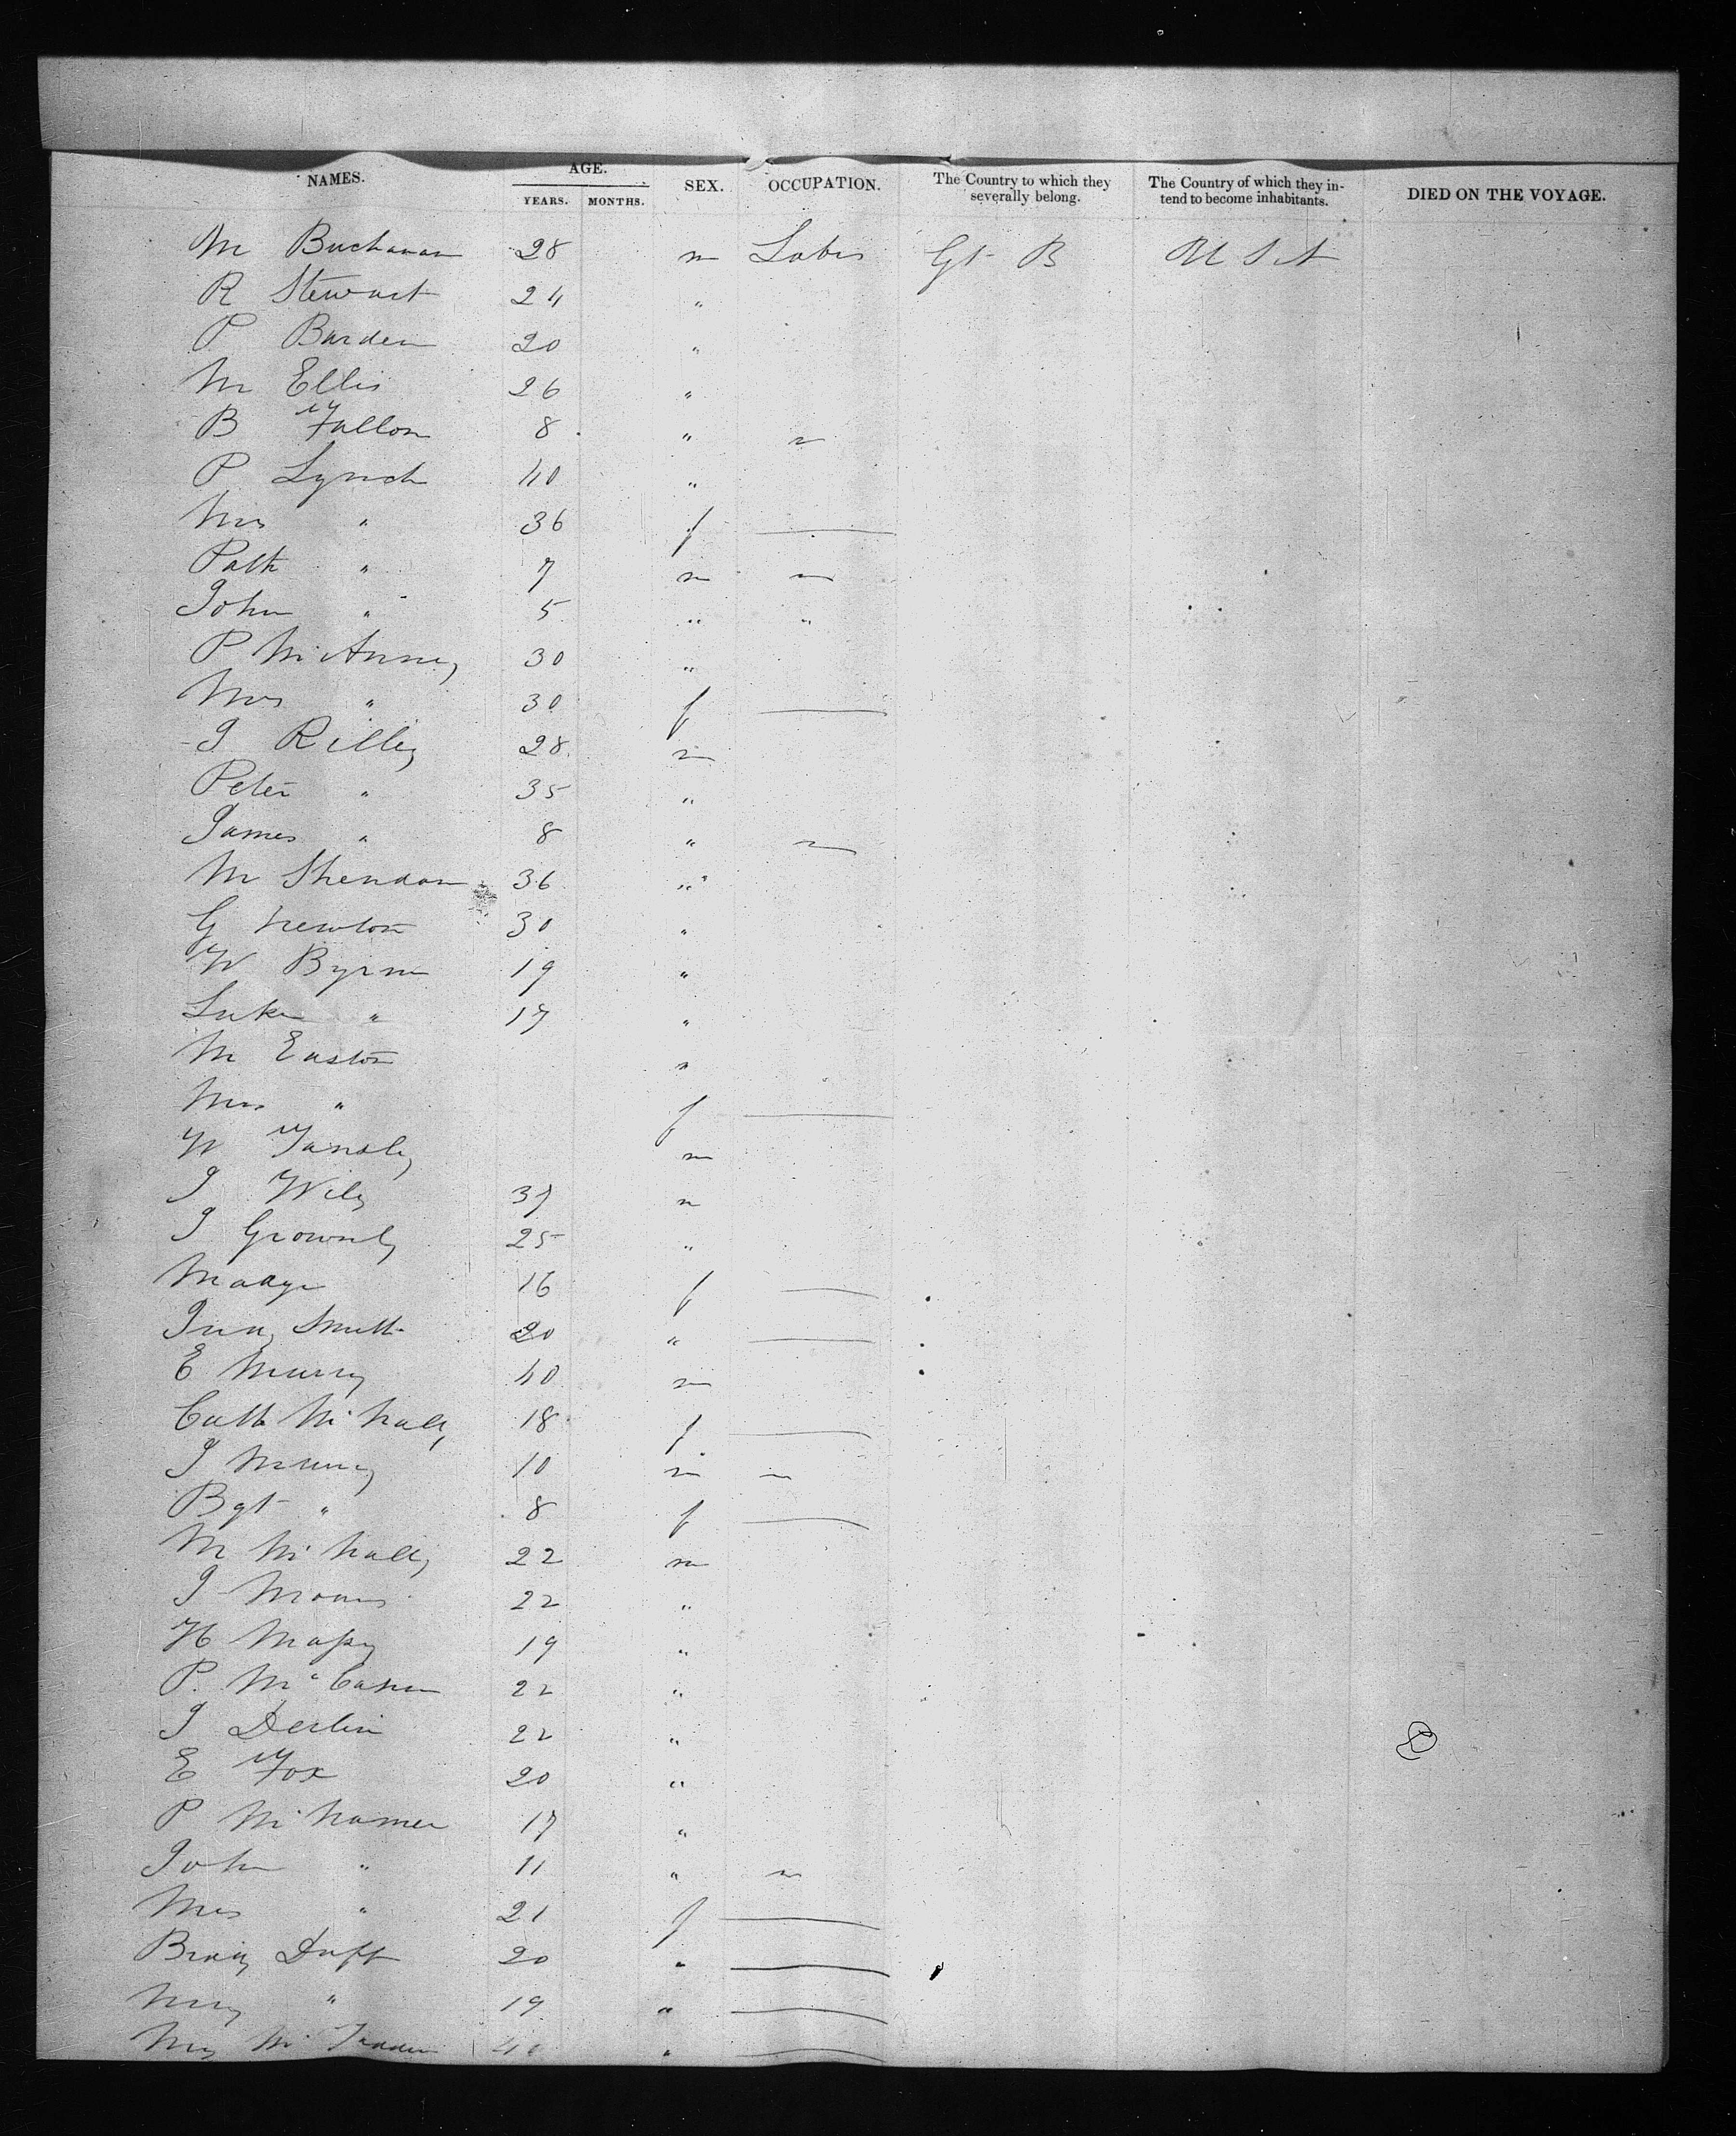 NAMES. AGE. SEX. OCCUPATION. The Country to which they severally belong. The Country of which they intend to become inhabitants. DIED ON THE VOYAGE.
YEARS. MONTHS.
M Buchanan 28 m Labr Gt B U S A
R Stewart 24 "
P Barden 20 "
M Ellis 26 "
B Fallon 8 "
P Lynch 40 "
Mrs " 36 f
Patk " 7 m
John " 5 " "
P McAnney 30 "
Mrs " 30 f
J Rilley 28 m
Peter " 35 "
James " 8 "
M Sheridan 36 "
G Newton 30 "
W Byrne 19 "
Luke " 17 "
M Easton "
Mrs " f
W Tansley m
J Wiley 37 m
J Grownly 25 "
Madge 16 f
Smith 20 "
E Murry 40 m
Cath McNally 18 f
J Murry 10 m
Bgt " 8 f
M McNally 22 m
J 22 "
H 19 "
P. Mc 22 "
J Derlin 22 "
E Fox 20 "
P McNamee 17 "
John " 11 "
Mrs " 21 f
Duff 20 "
Mary " 19 "
Mc Fadden 40 "